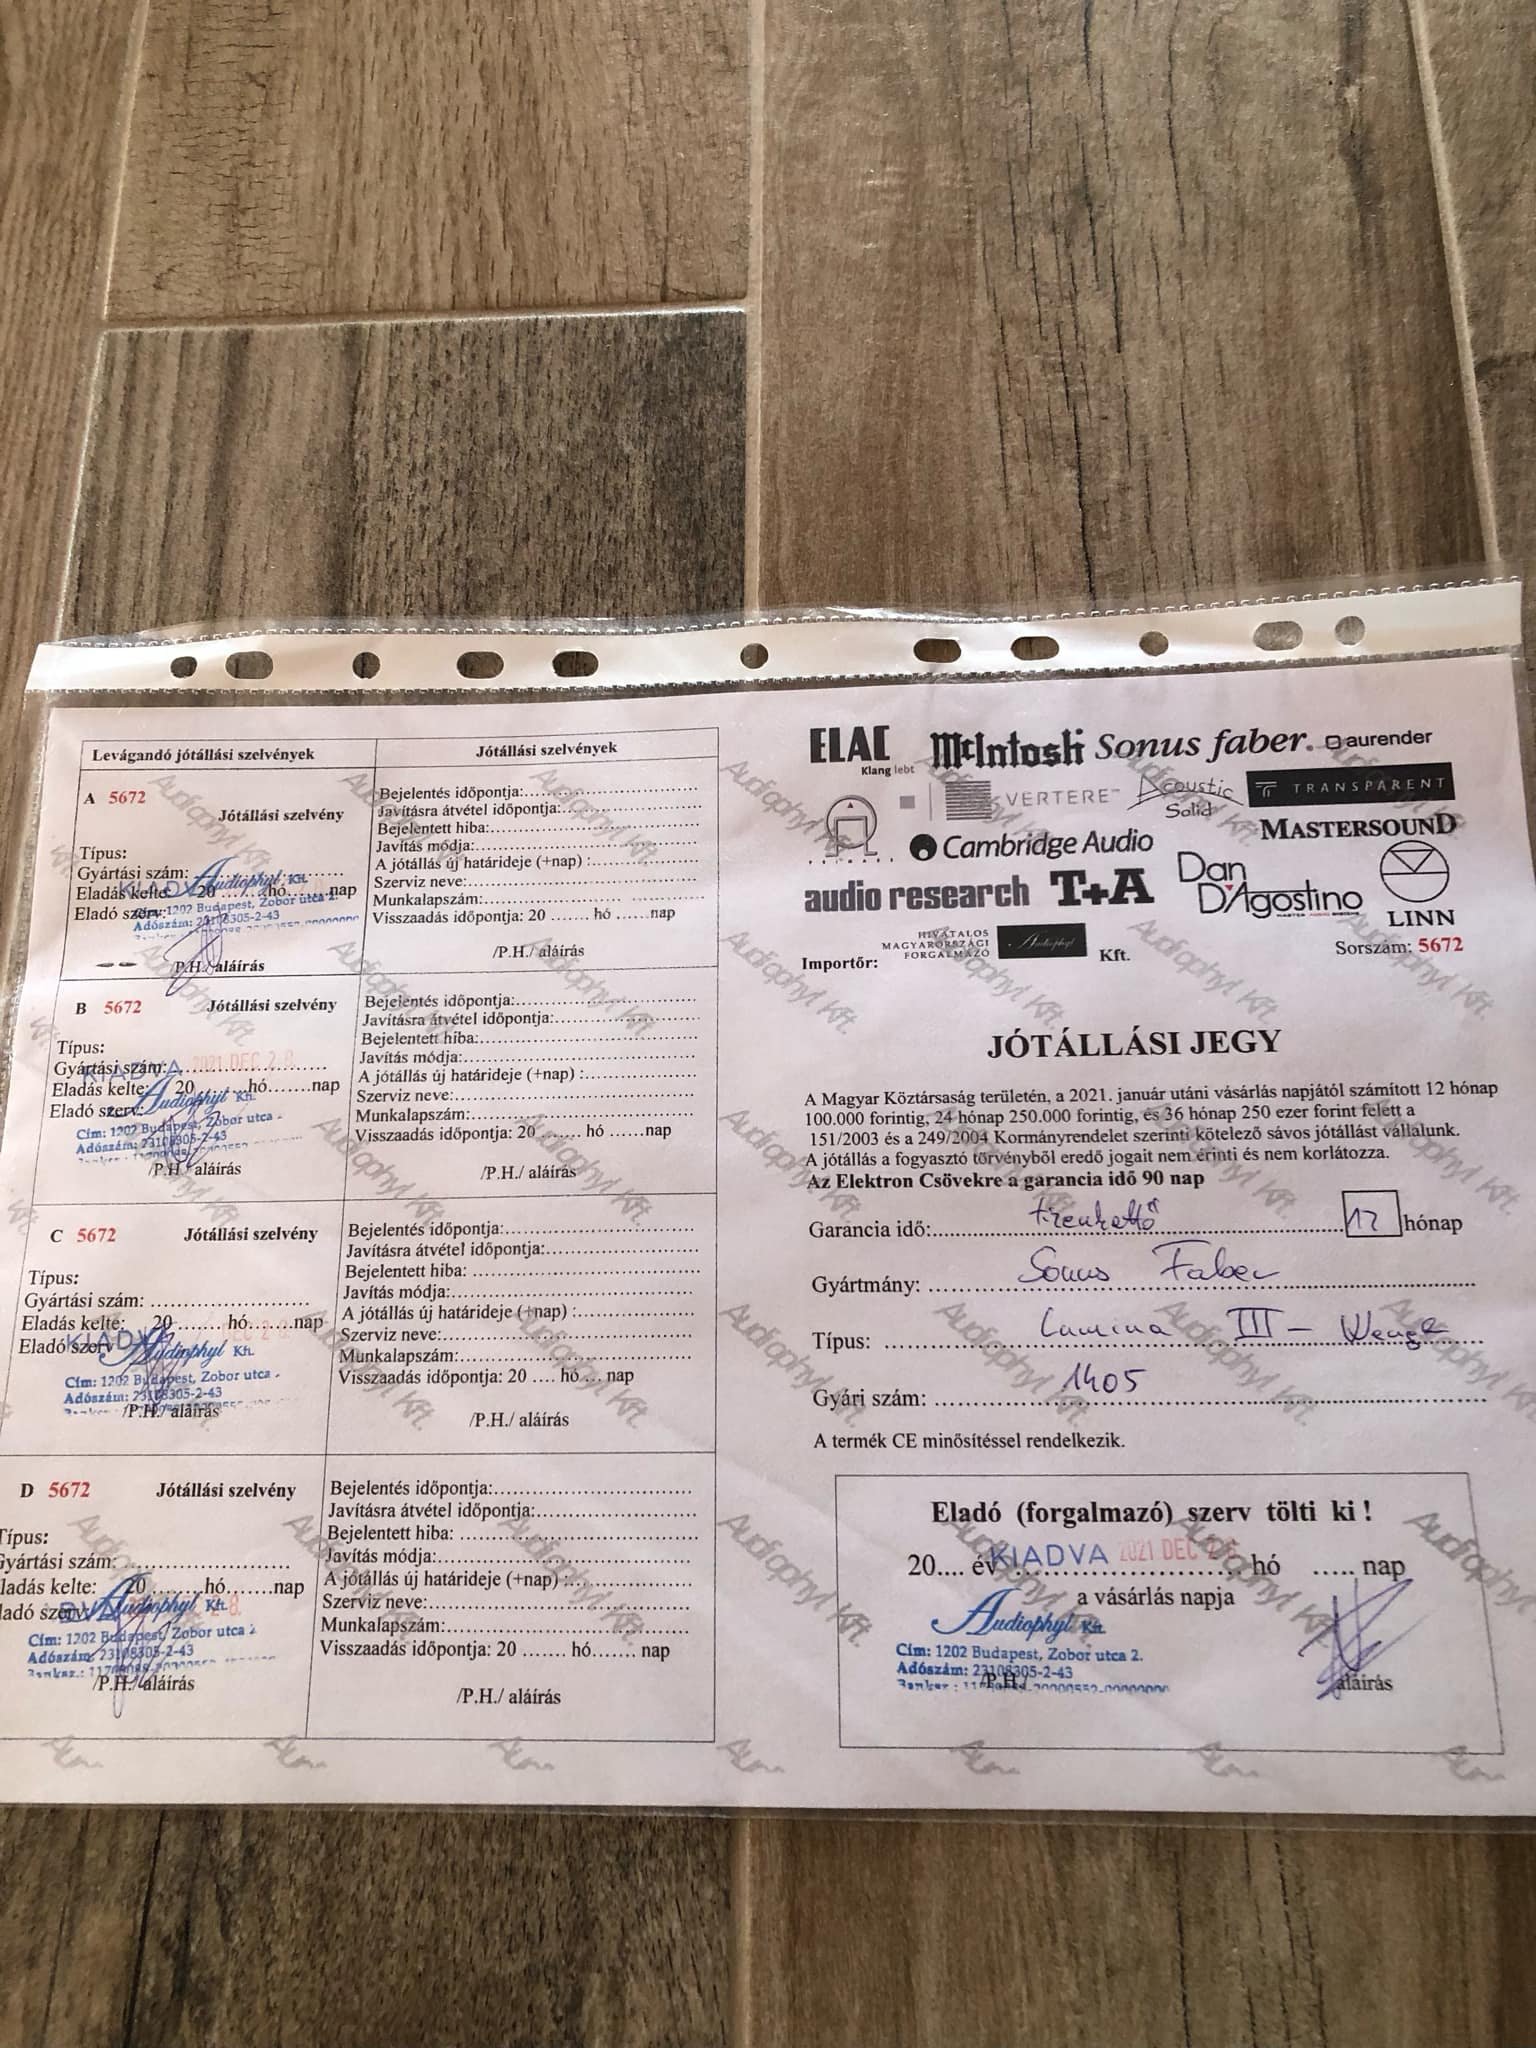 Levágandó jótállási szelvények
Jótállási szelvények
A 5672
Jótállási szelvény
Típus:
Gyártási szám:
Eladás kelte: 20 ....... hó.......nap
Eladó szerv:
KIADVA
Audiophyl Kft.
Cím: 1202 Budapest, Zobor utca 2.
Adószám: 23108305-2-43
/P.H./ aláírás
Bejelentés időpontja:
Javításra átvétel időpontja:
Bejelentett hiba:
Javítás módja:
A jótállás új határideje (+nap) :
Szerviz neve:
Munkalapszám:
Visszaadás időpontja: 20 ....... hó ......nap
/P.H./ aláírás
B 5672
Jótállási szelvény
Típus:
Gyártási szám:
KIADVA 2021 DEC 28.
Eladás kelte: 20 ....... hó.......nap
Eladó szerv:
Audiophyl Kft.
Cím: 1202 Budapest, Zobor utca
Adószám: 23108305-2-43
/P.H./ aláírás
Bejelentés időpontja:
Javításra átvétel időpontja:
Bejelentett hiba:
Javítás módja:
A jótállás új határideje (+nap) :
Szerviz neve:
Munkalapszám:
Visszaadás időpontja: 20 ....... hó ......nap
/P.H./ aláírás
C 5672
Jótállási szelvény
Típus:
Gyártási szám:
Eladás kelte: 20 ....... hó.......nap
Eladó szerv
KIADVA
Audiophyl Kft.
Cím: 1202 Budapest, Zobor utca
Adószám: 23108305-2-43
/P.H./ aláírás
Bejelentés időpontja:
Javításra átvétel időpontja:
Bejelentett hiba:
Javítás módja:
A jótállás új határideje (+nap) :
Szerviz neve:
Munkalapszám:
Visszaadás időpontja: 20 .... hó ... nap
/P.H./ aláírás
D 5672
Jótállási szelvény
Típus:
Gyártási szám:
ladás kelte: 20 .......hó.......nap
ladó szerv:
Audiophyl Kft.
Cím: 1202 Budapest, Zobor utca 2
Adószám: 23108305-2-43
/P.H./ aláírás
Bejelentés időpontja:
Javításra átvétel időpontja:
Bejelentett hiba:
Javítás módja:
A jótállás új határideje (+nap) :
Szerviz neve:
Munkalapszám:
Visszaadás időpontja: 20 ....... hó....... nap
/P.H./ aláírás
ELAC
Klang lebt
McIntosh
Sonus faber.
aurender
VERTERE™
Acoustic
Solid
TRANSPARENT
MASTERSOUND
Cambridge Audio
audio research
T+A
Dan
D'Agostino
MASTER AUDIO SYSTEMS
LINN
Importőr:
HIVATALOS
MAGYARORSZÁGI
FORGALMAZÓ
Audiophyl
Kft.
Sorszám: 5672
JÓTÁLLÁSI JEGY
A Magyar Köztársaság területén, a 2021. január utáni vásárlás napjától számított 12 hónap
100.000 forintig, 24 hónap 250.000 forintig, és 36 hónap 250 ezer forint felett a
151/2003 és a 249/2004 Kormányrendelet szerinti kötelező sávos jótállást vállalunk.
A jótállás a fogyasztó törvényből eredő jogait nem érinti és nem korlátozza.
Az Elektron Csövekre a garancia idő 90 nap
Garancia idő: tizenkettő 12 hónap
Gyártmány: Sonus Faber
Típus: Lumina III - Wenge
Gyári szám: 1405
A termék CE minősítéssel rendelkezik.
Eladó (forgalmazó) szerv tölti ki !
20.... év KIADVA 2021 DEC 28 hó ..... nap
a vásárlás napja
Audiophyl Kft.
Cím: 1202 Budapest, Zobor utca 2.
Adószám: 23108305-2-43
/P.H./
aláírás